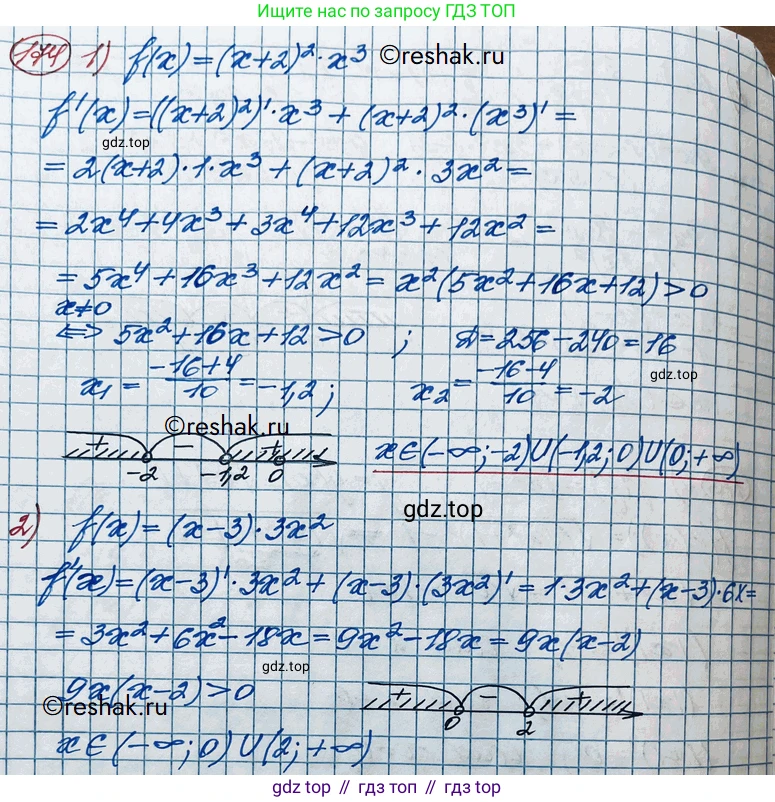 Ищите нас по запросу ГДЗ ТОП
174 1) f(x)=(x+2)²·x³ ©reshak.ru
f'(x)=((x+2)²)'·x³+(x+2)²·(x³)'=
gdz.top
=2(x+2)·1·x³+(x+2)²·3x²=
=2x⁴+4x³+3x⁴+12x³+12x²=
=5x⁴+16x³+12x²=x²(5x²+16x+12)>0
x≠0
⟺ 5x²+16x+12>0 ; D=256-240=16
x₁=(-16+4)/10=-1,2; x₂=(-16-4)/10=-2
gdz.top
©reshak.ru
+ - +
-2 -1,2 0
x∈(-∞;-2)∪(-1,2;0)∪(0;+∞)
gdz.top
2) f(x)=(x-3)·3x²
f'(x)=(x-3)'·3x²+(x-3)·(3x²)'=1·3x²+(x-3)·6x=
=3x²+6x²-18x=9x²-18x=9x(x-2)
gdz.top
9x(x-2)>0
©reshak.ru
+ - +
0 2
x∈(-∞;0)∪(2;+∞)
gdz.top // гдз.топ // gdz.top